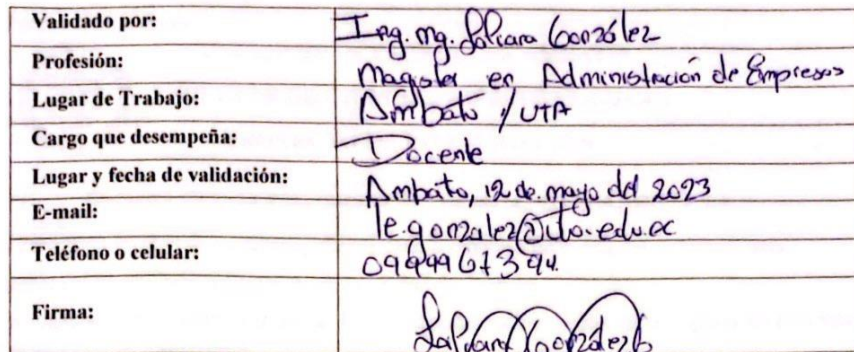 Validado por: Ing. Mg. Liliana González
Profesión: Magister en Administración de Empresas
Lugar de Trabajo: Ambato / UTA
Cargo que desempeña: Docente
Lugar y fecha de validación: Ambato, 12 de mayo del 2023
E-mail: le.gonzalez@uta.edu.ec
Teléfono o celular:
Firma: